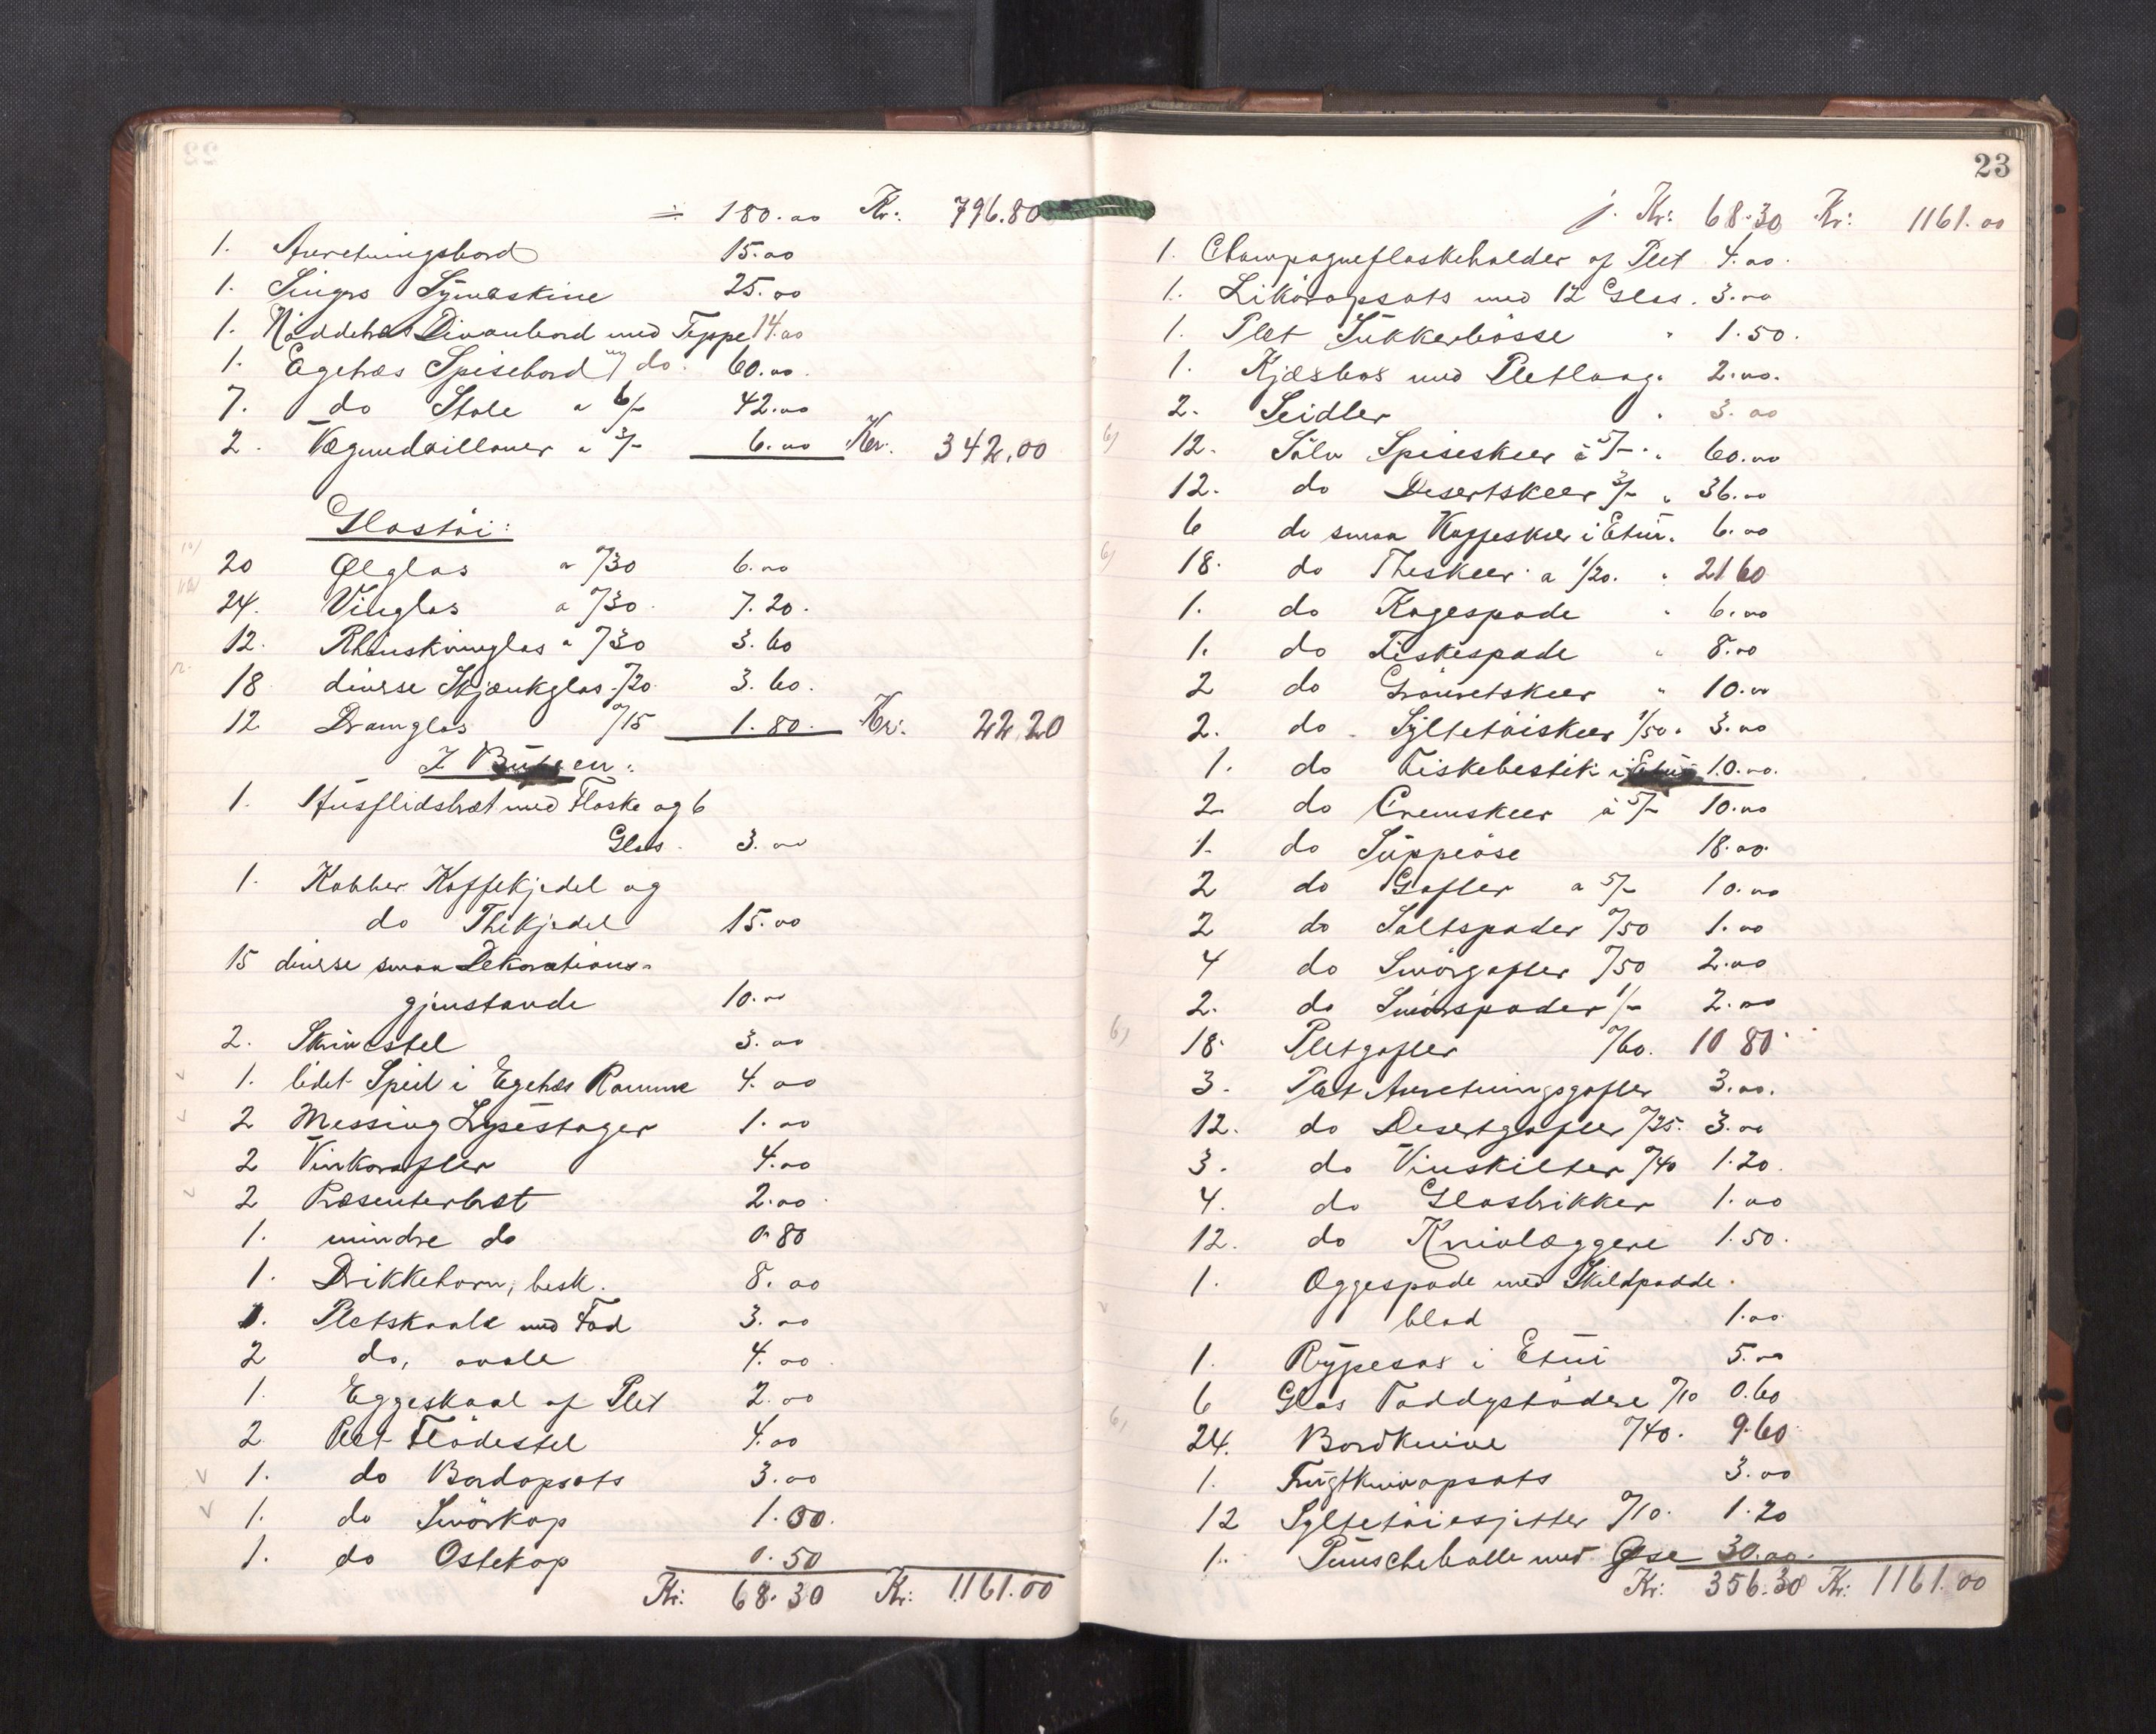 ÷ 180.00 Kr: 796.80
1. Anretningsbord 15.00
1. Singers Symaskine 25.00
1. Nöddetræs Divanbord med Teppe 14.00
1. Egetræs Spisebord m/ do. 60.00
7. do Stole a 6/- 42.00
2. Vægmedailloner a 3/- 6.00 Kr. 342.00
Glastöi:
20 Ølglas a 0/30 6.00
24. Vinglas a 0/30 7.20.
12. Rhinskvinglas a 0/30 3.60
18 diverse Skjænkglas 0/20 3.60.
12 Dramglas 0/15 1.80. Kr: 22.20
I Büffen:
1. Husflidsbræt med Flaske og 6
Glas. 3.00
1. Kobber Kaffekjedel og
do Thekjedel 15.00
15 diverse smaa Dekorations-
gjenstande 10.00
2. Skrivestel 3.00
1. lidet Speil i Egetræs Ramme 4.00
2 Messing Lysestager 1.00
2 Vinkarafler 4.00
2 Præsenterbræt 2.00
1. mindre do 0.80
1. Drikkehorn, besk. 8.00
1. Pletskaale med Fad 3.00
2 do, ovale 4.00
1. Eggeskaal af Plet 2.00
2 Plet Flödestel 4.00
1. do Bordopsats 3.00
1. do Smörkop 1.00.
1. do Ostekop 0.50
Kr: 68.30 Kr: 1161.00
23
Kr: 68.30 Kr: 1161.00
1. Champagneflaskeholder af Plet 4.00.
1. Liköropsats med 12 Glas. 3.00
1. Plet Sükkerbösse " 1.50.
1. Kjæxbox med Pletlaag. 2.00.
2. Seidler " 3.00
6) 12. Sölv Spiseskeer à 5/- " 60.00
12. do Desertskeer 3/- " 36.00
6 do smaa Kaffeskeer i Etüi. 6.00
6) 18. do Theskeer a 1/20. " 21 60
1. do Kagespade " 6.00
1. do Fiskespade " 8.00
2 do Grönretskeer " 10.00
2. do Syltetöiskeer 1/50. 3.00
1. do Fiskebestik i Etüi 10.00.
2. do Cremskeer à 5/- 10.00
1. do Süppeöse 18.00.
2 do Gafler a 5/- 10.00
2 do Saltspader 0/50 1.00
4 do Smörgafler 0/50 2.00
2. do Smörspader 1/- 2.00
6) 18. Pletgafler 0/60. 10 80
3. Plet Anretningsgafler 3.00.
12. do Desertgafler 0/25. 3.00
3. do Vinskilter 0/40 1.20.
4. do Glasbrikker 1.00
12. do Knivlæggere 1.50.
1. Æggespade med Skildpadde-
blad 1.00.
1. Rypesax i Etüi 5.00
6 Glas Toddystödere 0/10 0.60
6) 24. Bordknive 0/40. 9.60
1. Frugtknivopsats 3.00
12 Syltetöiesjetter 0/10. 1.20
1. Punschebolle med Øse 30.00.
Kr: 356.30 Kr: 1161.00